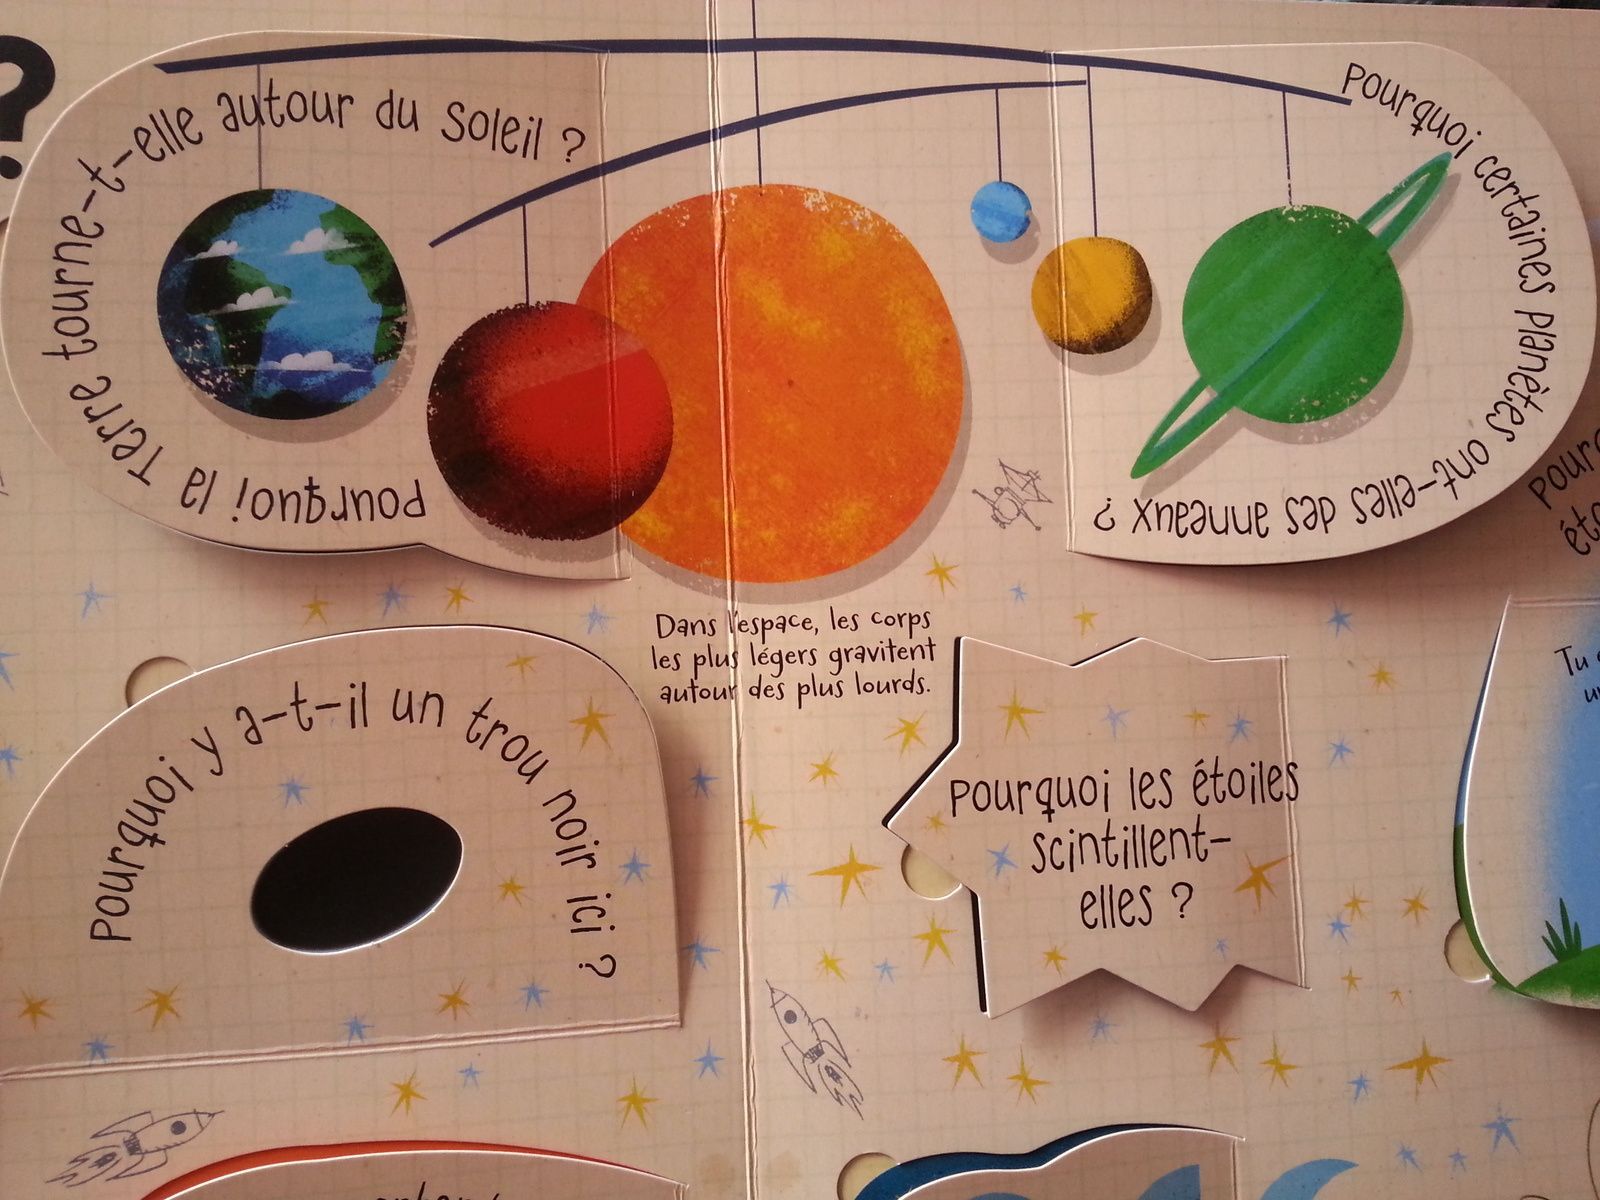 ?
Pourquoi la Terre tourne-t-elle autour du Soleil ?
Pourquoi certaines planètes ont-elles des anneaux ?
Dans l'espace, les corps
les plus légers gravitent
autour des plus lourds.
Pourquoi y a-t-il un trou noir ici ?
Pourquoi les étoiles
scintillent-
elles ?
Tu